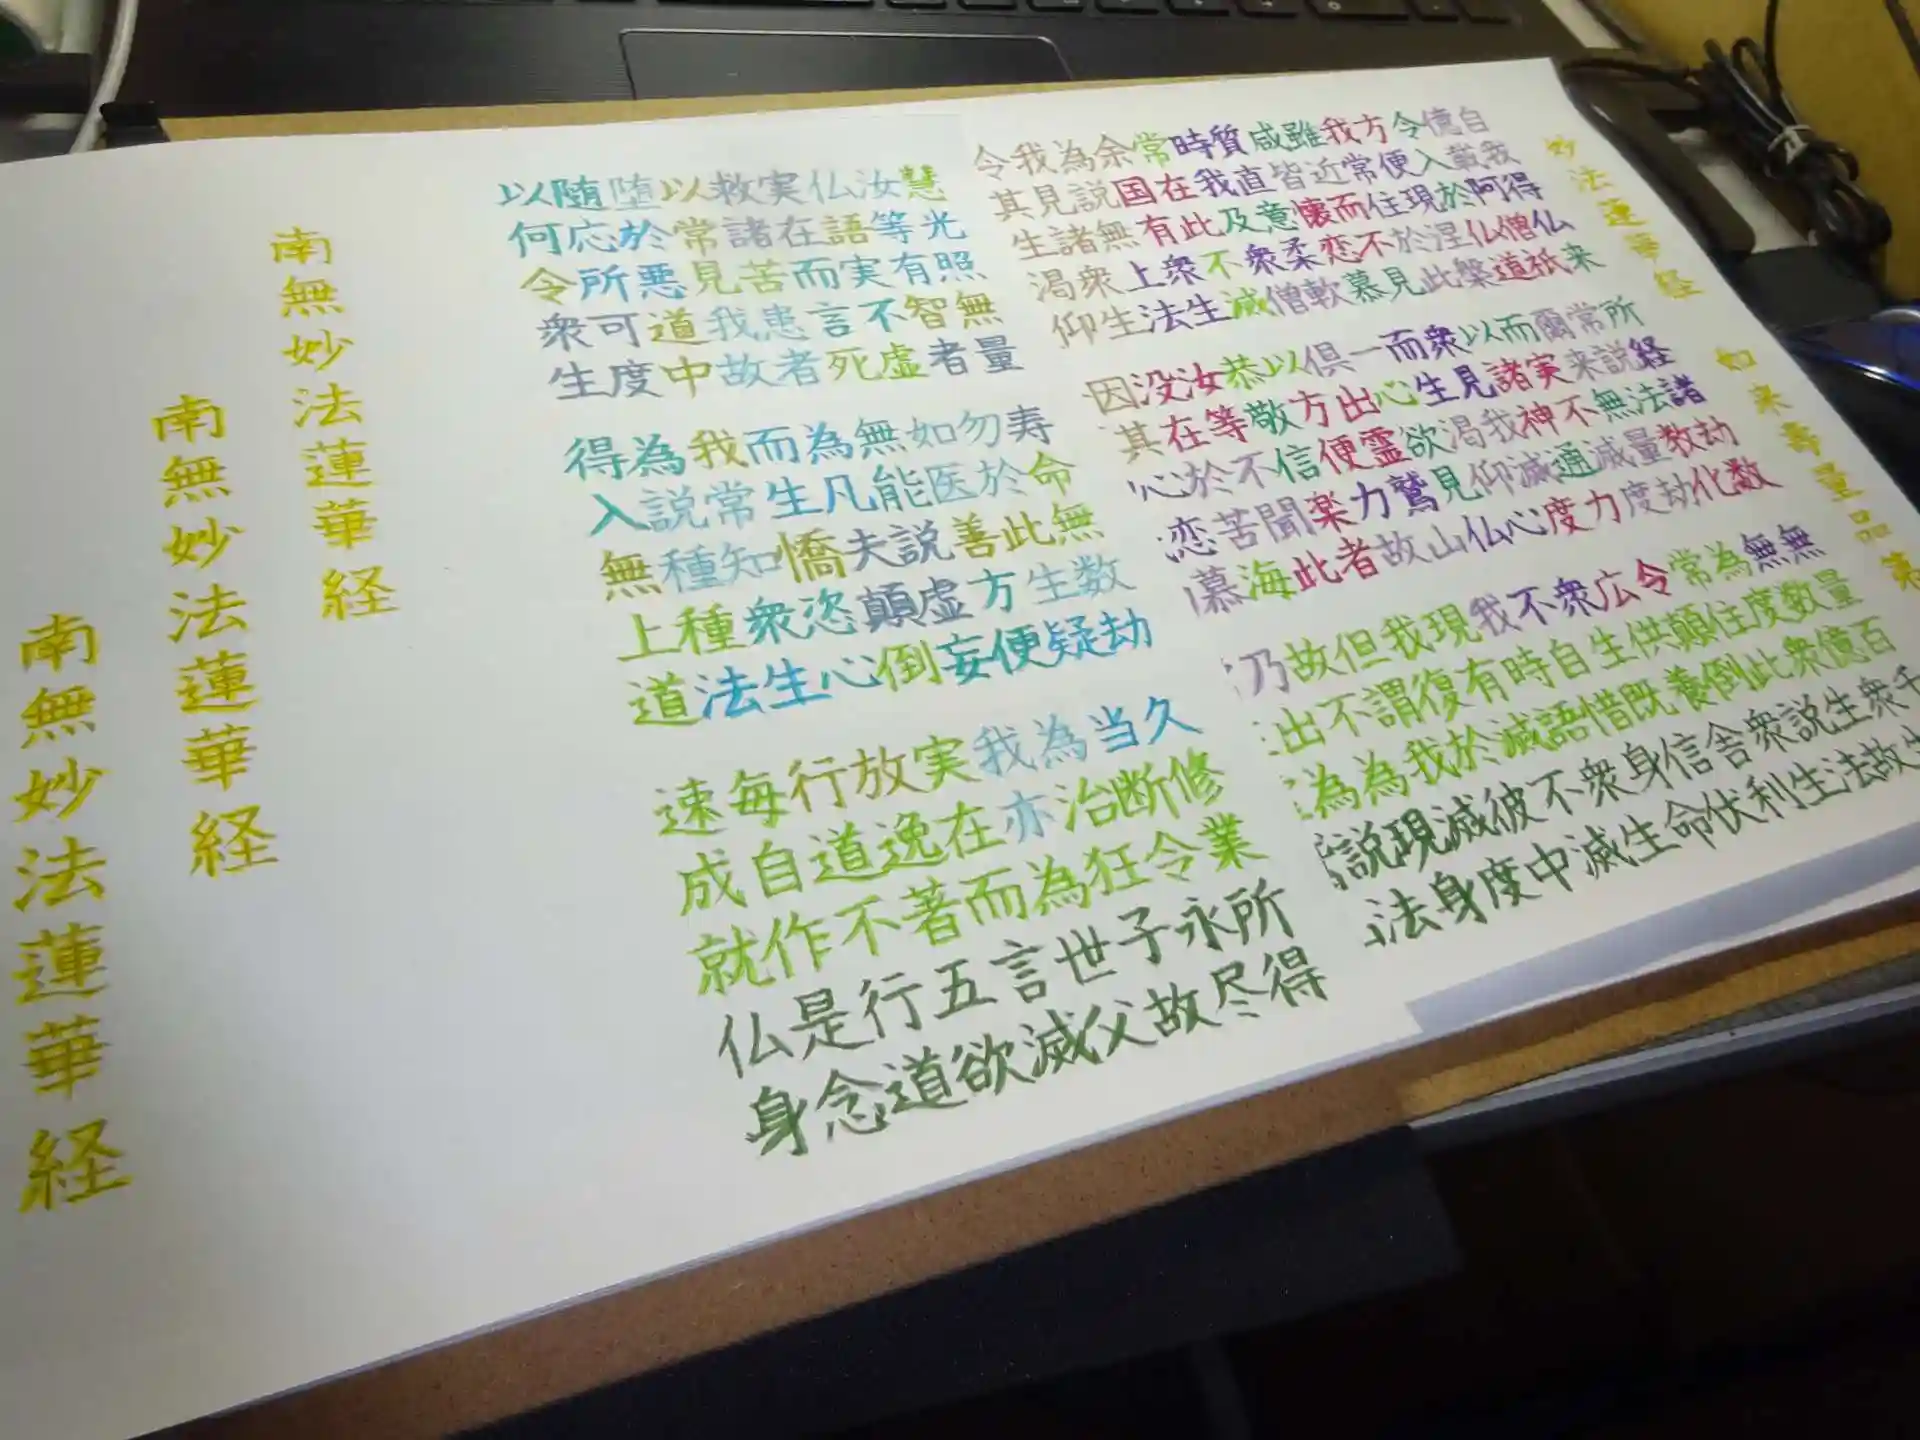 妙法蓮華経 如来寿量品第
自我得仏来 所経諸劫数 無量百千
億載阿僧祇 常説法教化 無数億衆生
令入於仏道 爾来無量劫 為度衆生故
方便現涅槃 而実不滅度 常住此説法
我常住於此 以諸神通力 令顛倒衆生
雖近而不見 衆見我滅度 広供養舎利
咸皆懐恋慕 而生渇仰心 衆生既信伏
質直意柔軟 一心欲見仏 不自惜身命
時我及衆僧 倶出霊鷲山 我時語衆生
常在此不滅 以方便力故 現有滅不滅
余国有衆生 恭敬信楽者 我復於彼中
為説無上法 汝等不聞此 但謂我滅度
我見諸衆生 没在於苦海 故不為現身
令其生渇仰 因其心恋慕 乃出為説法
慧光照無量 寿命無数劫 久修業所得
汝等有智者 勿於此生疑 当断令永尽
仏語実不虚 如医善方便 為治狂子故
実在而言死 無能説虚妄 我亦為世父
救諸苦患者 為凡夫顛倒 実在而言滅
以常見我故 而生憍恣心 放逸著五欲
堕於悪道中 我常知衆生 行道不行道
随応所可度 為説種種法 毎自作是念
以何令衆生 得入無上道 速成就仏身
南無妙法蓮華経
南無妙法蓮華経
南無妙法蓮華経